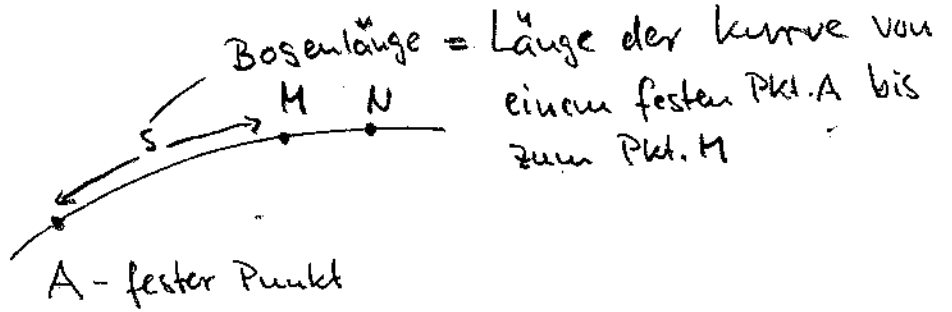 Bogenlänge = Länge der Kurve von
einem festen Pkt. A bis
zum Pkt. M
M N
S
A - fester Punkt